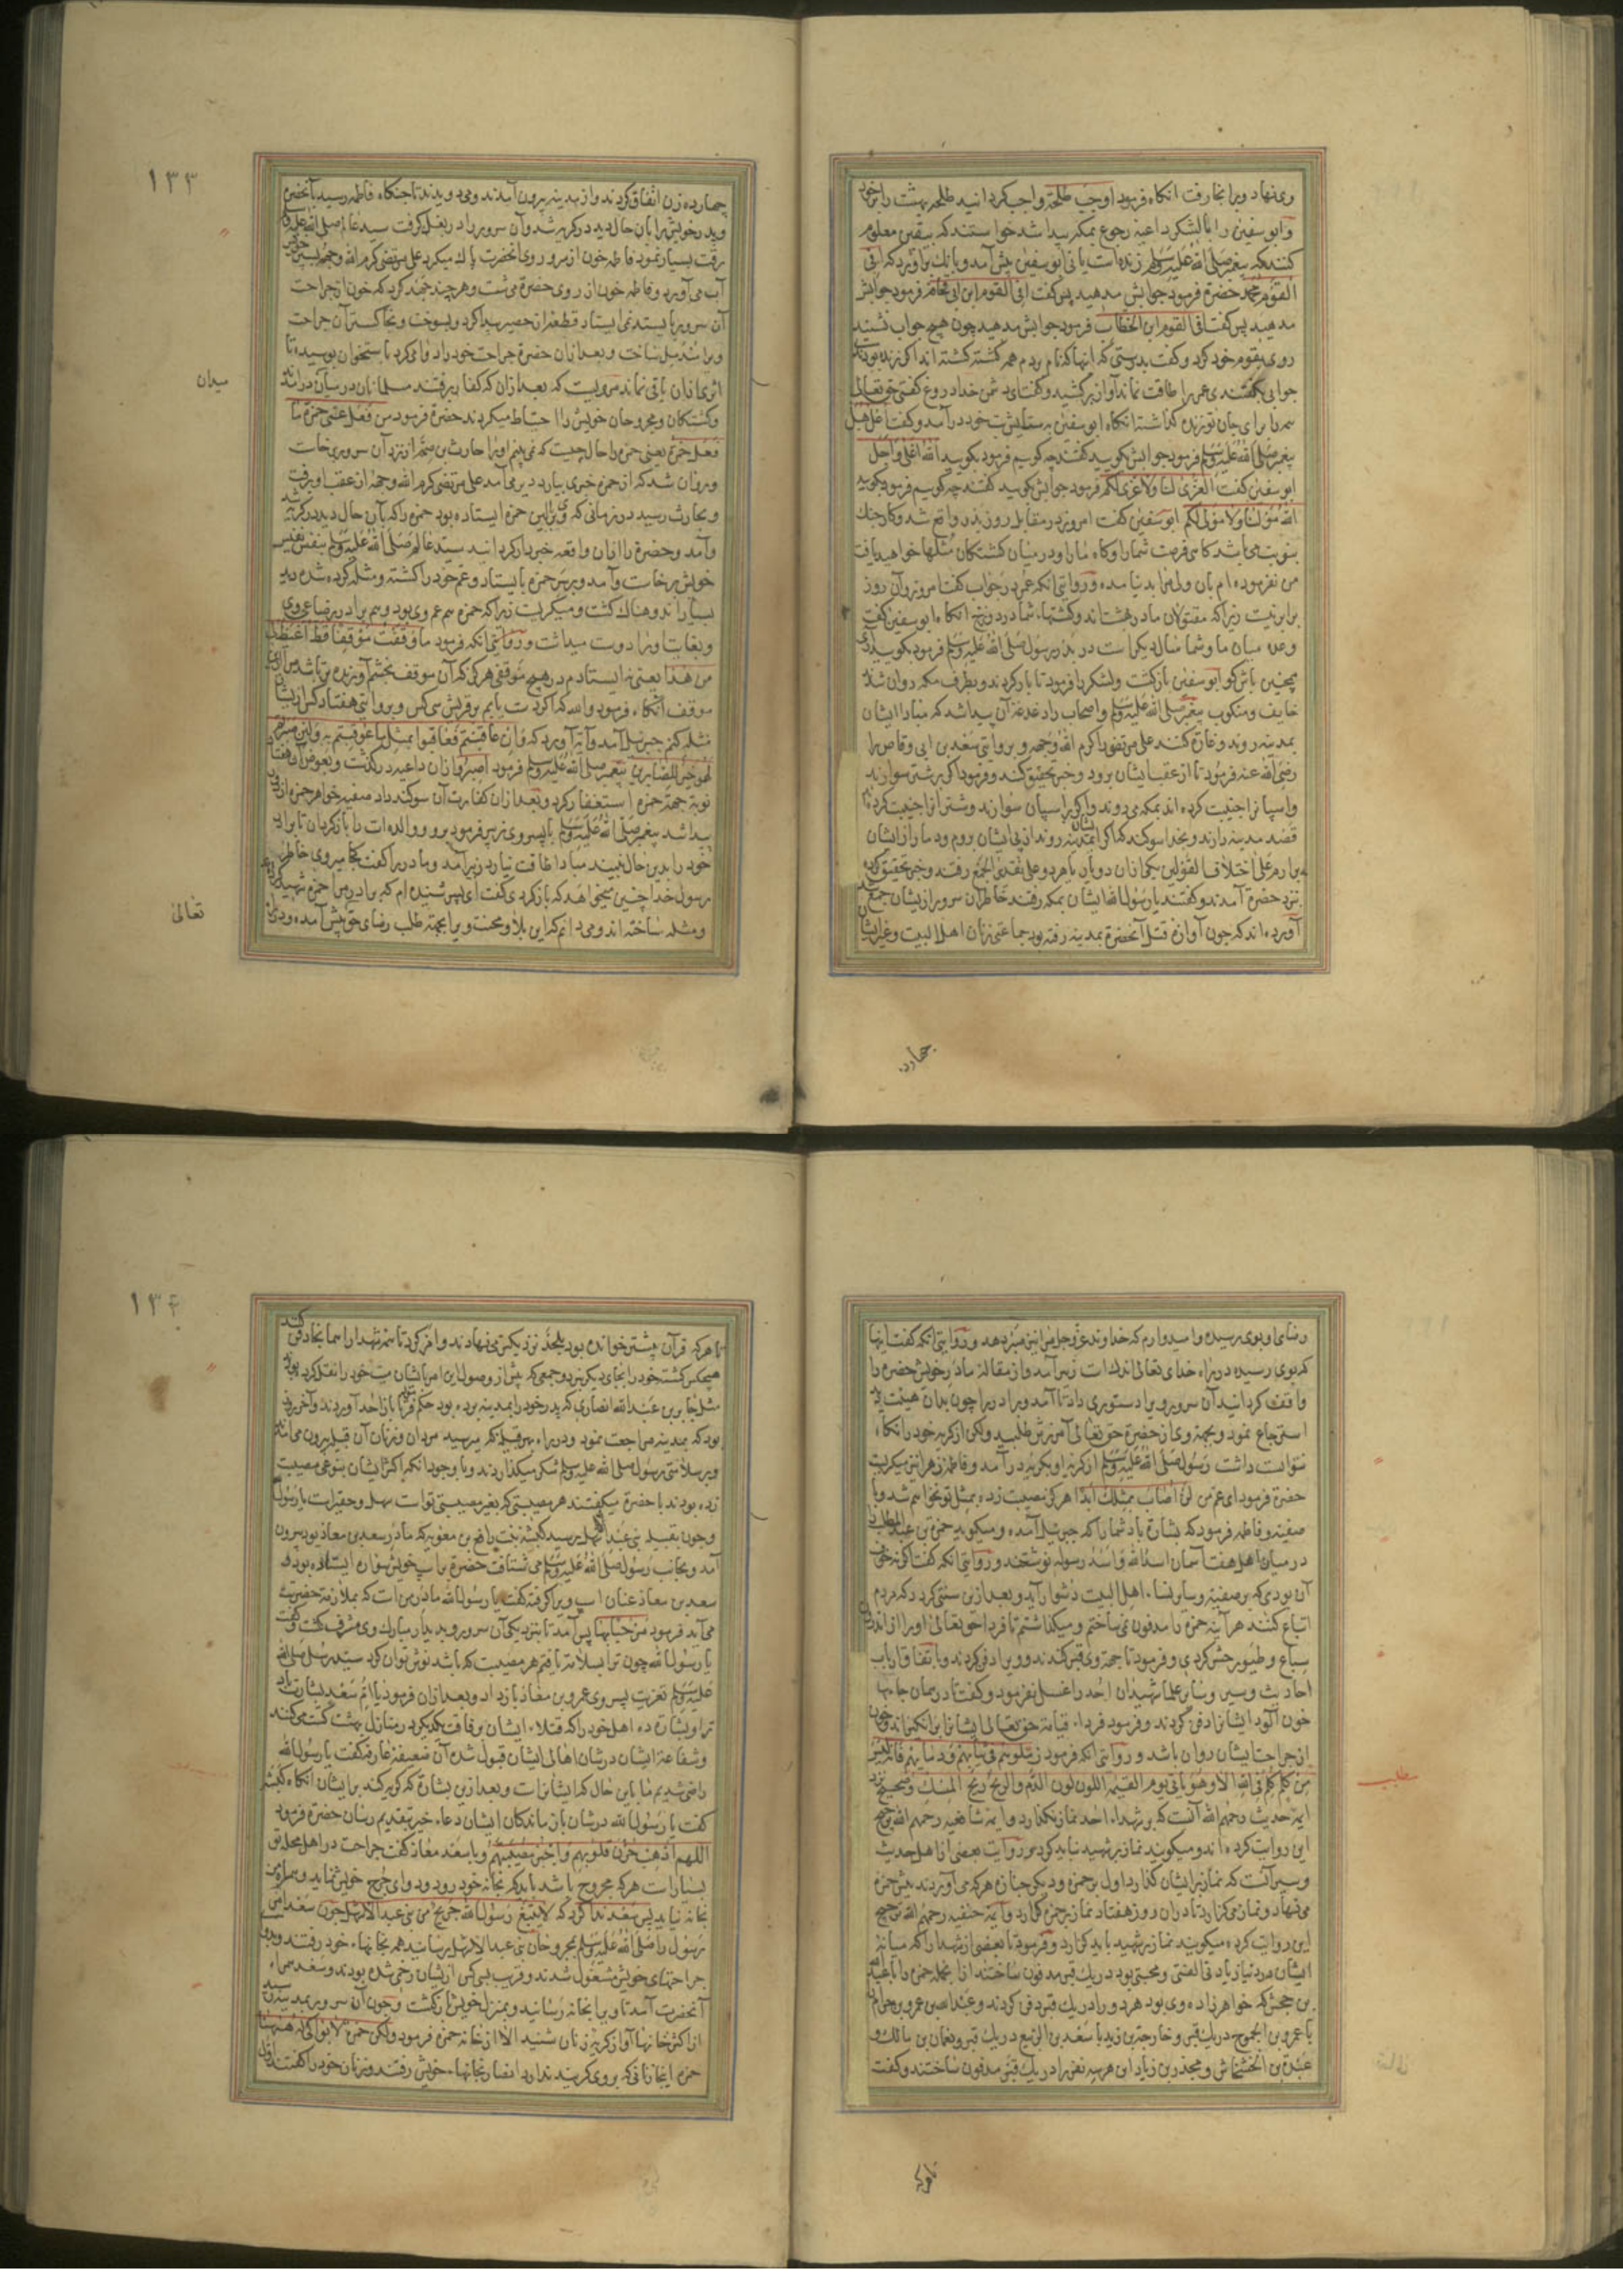 وی نهاد و برانجا رفت انکاه فرمود اوجب طلحة واجب کردانید طلحه بهشت را برخود
وابوسفین را با لشکر داعیه رجوع بمکه پیدا شد خواستند که بیقین معلوم
کنند که پیغمبر صلی الله علیه وسلم زنده است یا نی ابوسفین پیش آمد و بانک برآورد که افی
القوم محمد حضرة فرمود جوابش مدهید پس کفت افی القوم ابن ابی قحافه فرمود جوابش
مدهید پس کفت افی القوم ابن الخطاب فرمود جوابش مدهید چون هیچ جواب نشنید
روی بقوم خود کرد و کفت بدرستی که اینها که نام بردم همه کشته کشته اند اکر زنده بودندی
جواب کفتندی عمر را طاقت نماند آواز برکشید و کفت ای دشمن خدا دروغ کفتی حق تعالی
همه را برای جان تو زنده کذاشته انکاه ابوسفین بستایش بت خود درآمد و کفت اعل هبل
پیغمبر صلی الله علیه وسلم فرمود جوابش بکویید کفتند چه کوییم فرمود بکویید الله اعلی واجل
ابوسفین کفت العزی لنا ولا عزی لکم فرمود جوابش کویید کفتند چه کوییم فرمود بکویید
الله مولنا ولا مولی لکم ابوسفین کفت امروز در مقابل روز بدر واقع شد و کار جنک
بنوبت می باشد کاهی فرصت شما را و کاه ما را و در میان کشتکان مثلها خواهید یافت
من نفرموده ام بان ولی مرا بد نیامده و روایتی انکه عمر در جواب کفت امروز و آن روز
برابر نیست زیرا که مقتولان ما در بهشت اند و کشتهاء شما در دوزخ انکاه ابوسفین کفت
وعده میان ما و شما سال دیکر است در بدر رسول صلی الله علیه وسلم فرمود بکویید آری
همچنین باش کو ابوسفین بازکشت و لشکر را فرمود تا بار کردند و بطرف مکه روان شد
خایف و منکوب پیغمبر صلی الله علیه وسلم و اصحاب را دغدغه آن پیدا شد که مبادا ایشان
بمدینه روند و غارة کنند علی مرتضی را کرم الله وجهه و بروایتی سعد بن ابی وقاص را
رضی الله عنه فرمود تا از عقب ایشان برود و خبر تحقیق کند و فرمود اکر بر شتر سوارند
و اسپانرا جنیبت کرده اند بمکه می روند و اکر بر اسپان سوارند و شترانرا جنیبت کرده اند
قصد مدینه دارند و بخدا سوکند که اکر ایشان بمدینه روند از پی ایشان بروم و دمار از ایشان
برارم علی اختلاف القولین یکی ازان دو یار یا هر دو علی تقدیر الجمع رفتند و خبر تحقیق کرده
نزد حضرة آمدند و کفتند یا رسول الله ایشان بمکه رفتند خاطر آن سرور از ایشان جمع شد
آورده اند که چون آوازه قتل آنحضرة بمدینه رفته بود جماعتی زنان اهل البیت و غیر ایشان
چهارده
۱۳۳
چهارده زن اتفاق کردند و از مدینه بیرون آمدند و می دویدند تا جنکاه فاطمه رسید بآنحضرة
و پدر خویش را بآن حال دید در کریه شد و آن سرور را در بغل کرفت سید عالم صلی الله علیه وسلم
رقت بسیار نمود فاطمه خون از سر و روی انحضرت پاک میکرد علی مرتضی کرم الله وجهه بسپر خویش
آب می آورد و فاطمه خون از روی حضرة می شست و هرچند جهد کرد که خون از جراحت
آن سرور بایستد نمی ایستاد قطعه از حصیر پیدا کرد و بسوخت و بخاکستر آن جراحت
ویرا مندمل ساخت و بعد ازان حضرة جراحت خود را دوا می کرد با ستخوان بوسیده تا
اثری ازان باقی نماند مرویست که بعد ازان که کفار برفتند مسلمانان در میان درآمدند
میدان
و کشتکان و مجروحان خویش را احتیاط میکردند حضرة فرمود من فعل عمی حمزة ما
فعل حمزة یعنی حمزه را حال چیست که نمی بینم اورا حارث بن صمه از نزد آن سرور برخاست
و روان شد که از حمزه خبری بیارد دیر می آمد علی مرتضی کرم الله وجهه از عقب او برفت
و بحارث رسید در زمانی که وی بر بالین حمزه ایستاده بود حمزه را که بآن حال دید در کریه شد
وآمد و حضرة را ازان واقعه خبردار کردانید سید عالم صلی الله علیه وسلم بنفس نفیس
خویش برخاست وآمد و بر سر حمزه بایستاد و عم خود را کشته و مثله کرده شده دید
بسیار اندوهناک کشت و میکریست زیرا که حمزه هم عم وی بود و هم برادر رضاعی وی
و بغایت اورا دوست میداشت و روایتی انکه فرمود ما وقفت موقفا قط اغیظ لی
من هذا یعنی نه ایستادم در هیچ موقفی هرکز که آن موقف بخشم آورنده تر باشد مرا ازین
موقف انکاه فرمود والله که اکر دست یابم بر قریش سی کس و بروایتی هفتاد کس از ایشان
مثله کنم جبرئیل آمد و آیه آورد که وان عاقبتم فعاقبوا بمثل ما عوقبتم به ولئن صبرتم
لهو خیر للصابرین پیغمبر صلی الله علیه وسلم فرمود اصبر و ازان داعیه درکذشت و بعوض آن هفتاد
نوبة جهة حمزه استغفار کرد و بعد ازان کفارت آن سوکند داد صفیه خواهر حمزه از دور
پیدا شد پیغمبر صلی الله علیه وسلم با پسر وی زبیر فرمود برو و والده ات را بازکردان تا برادر
خود را بدین حال نبیند مبادا طاقت نیارد زبیر آمد و مادر را کفت کجا میروی خاطر
رسول خدا چنین میخواهد که بازکردی کفت ای پسر شنیده ام که برادر مرا حمزه شهید کرده اند
و مثله ساخته اند و می دانم که این بلا و محنت ویرا بجهة طلب رضای حق پیش آمده و در راه
تعالی
رضای او بوی رسیده و امیدوارم که خداوند عزوجل مرا نیز صبر دهد و روایتی انکه کفت اینها
که بوی رسیده در راه خدای تعالی اندک است زبیر آمد و از مقاله مادر خویش حضرة را
واقف کردانید آن سرور ویرا دستوری داد تا آمد و برادر را چون بدان هیئت دید
استرجاع نمود و بجهة وی از حضرة حق تعالی آمرزش طلبید ولکن از کریه خود را نکاه
نتوانست داشت رسول صلی الله علیه وسلم از کریه او بکریه درآمد و فاطمه زهرا نیز میکریست
حضرة فرمود ای عم من لن اصاب بمثلک ابدا هرکز مصیبت زده بمثل تو نخواهم شد و با
صفیه و فاطمه فرمود که بشارة باد شما را که جبرئیل آمده و میکوید حمزة بن عبدالمطلب را
در میان اهل هفت آسمان اسد الله واسد رسوله نوشتند و روایتی انکه کفت اکر نه خوف
آن بودی که بر صفیه و سایر نساء اهل البیت دشوار آید و بعد ازین سنتی کردد که مردم
اتباع کنند هرآینه حمزه را مدفون نمی ساختم و میکذاشتم تا فردا حق تعالی اورا از اندرون
سباع و طیور حشر کردی و فرمود تا جهة وی قبر کندند و ویرا دفن کردند و باتفاق ارباب
احادیث و سیر و سایر علما شهیدان احد را غسل نفرمود و کفت تا در همان جامها
خون آلود ایشانرا دفن کردند و فرمود فرداء قیامة حق تعالی ایشانرا برانکیزاند و خون
از جراحت ایشان روان باشد و روایتی انکه فرمود زملوهم فی ثیابهم ودمایهم فانه لیس
من کلم کلم فی الله الا وهو یاتی یوم القیمه اللون لون الدم والریح ریح المسک و صحیح نزد
مطلب
ایمه حدیث رحمهم الله آنست که بر شهداء احد نماز نکذارد و ایمه شافعیه رحمهم الله ترجیح
این روایت کرده اند و میکویند نماز بر شهید نباید کرد و بروایت بعضی از اهل حدیث
و سیر آنست که نماز بر ایشان کذارد اول بر حمزه و دیکر جنازه هرکه می آوردند پیش حمزه
می نهاد و نماز می کزارد تا دران روز هفتاد نماز بر حمزه کزارد و ایمه حنفیه رحمهم الله ترجیح
این روایت کرده میکویند نماز بر شهید باید کزارد و فرمود تا بعضی از شهدا را که میانه
ایشان در دنیا زیادتی الفتی و محبتی بود در یک قبر مدفون ساختند ازانجمله حمزه را با عبدالله
بن جحش که خواهرزاده وی بود هر دو را در یک قبر دفن کردند و عبدالله بن عمرو بن حرام
با عمرو بن الجموح در یک قبر و خارجة بن زید با سعد بن الربیع در یک قبر و نعمان بن مالک و
عبدة بن الخشخاش و مجذر بن زیاد این هر سه نفر را در یک قبر مدفون ساختند و کفت
تا هرکه
۱۳۴
تا هرکه قرآن بیشتر خوانده بود بلحد نزدیکتر می نهادند و امر کرد تا همه شهدا را همانجا دفن کنند
هیچکس کشته خود را بجای دیکر نبرد و جمعی که پیش از وصول این امر بایشان میت خود را نقل کرده بودند
مثل جابر بن عبدالله انصاری که پدر خود را بمدینه برده بود بحکم قضا باز احد آوردند و آخر روز
بود که بمدینه مراجعت نمود و در راه بهر قبیله که می رسید مردان و زنان آن قبیله بیرون می آمدند
و بر سلامتی رسول صلی الله علیه وسلم شکر میکذاردند و با وجود انکه اکثر ایشان بنوعی مصیبت
زده بودند با حضرة میکفتند هر مصیبتی که بغیر مصیبت تو است سهل و حقیر است یا رسول الله
و چون بقبیله بنی عبدالاشهل رسید کبشة بنت رافع بن معویه که مادر سعد بن معاذ بود بیرون
آمد و بجانب رسول صلی الله علیه وسلم می شتافت حضرة بر اسپ خویش سواره ایستاده بود و
سعد بن معاذ عنان اسپ ویرا کرفته کفت یا رسول الله مادر من است که بملازمة حضرتت
می آید فرمود مرحبا بها پس آمد تا بنزدیکی آن سرور و بدیدار مبارک وی مشرف کشت و کفت
یا رسول الله چون ترا بسلامة یافتم هر مصیبت که باشد نوش توان کرد سید رسل صلی الله
علیه وسلم تعزیت پسر وی عمرو بن معاذ بازداد و بعد ازان فرمود یا ام سعد بشارت باد
ترا و بشارة ده اهل خود را که قتلاء ایشان رفاقت یکدیکر در منازل بهشت کشت می کنند
و شفاعة ایشان در شان اهالی ایشان قبول شده آن ضعیفه عارفه کفت یا رسول الله
راضی شدیم ما باین حال که ایشانراست و بعد ازین بشارة که کریه کند بر ایشان انکاه کبشه
کفت یا رسول الله در شان بازماندکان ایشان دعاء خیر بتقدیم رسان حضرة فرمود
اللهم اذهب حزن قلوبهم واجبر مصیبتهم و با سعد معاذ کفت جراحت در اهل محله تو
بسیار است هرکه مجروح باشد باید که بخانه خود رود و دوای جرح خویش نماید و همراه من
بخانه نیاید پس سعد ندا کرد که لا یتبع رسول الله جریح من بنی عبدالاشهل چون سعد امر
رسول را صلی الله علیه وسلم بمجروحان بنی عبدالاشهل رسانید همه بخانهاء خود رفتند و بدوای
جراحتهای خویش مشغول شدند و قریب بسی کس از ایشان زخمی شده بودند و سعد همراه
آنحضرت آمد تا ویرا بخانه رسانید و بمنزل خویش بازکشت و چون آن سرور بمدینه رسید
از اکثر خانها آواز کریه زنان شنید الا از خانه حمزه فرمود ولکن حمزة لا بواکی له ههنا
حمزه اینجا زنانی که بروی کریند ندارد انصار بخانهاء خویش رفتند و زنان خود را کفتند اول